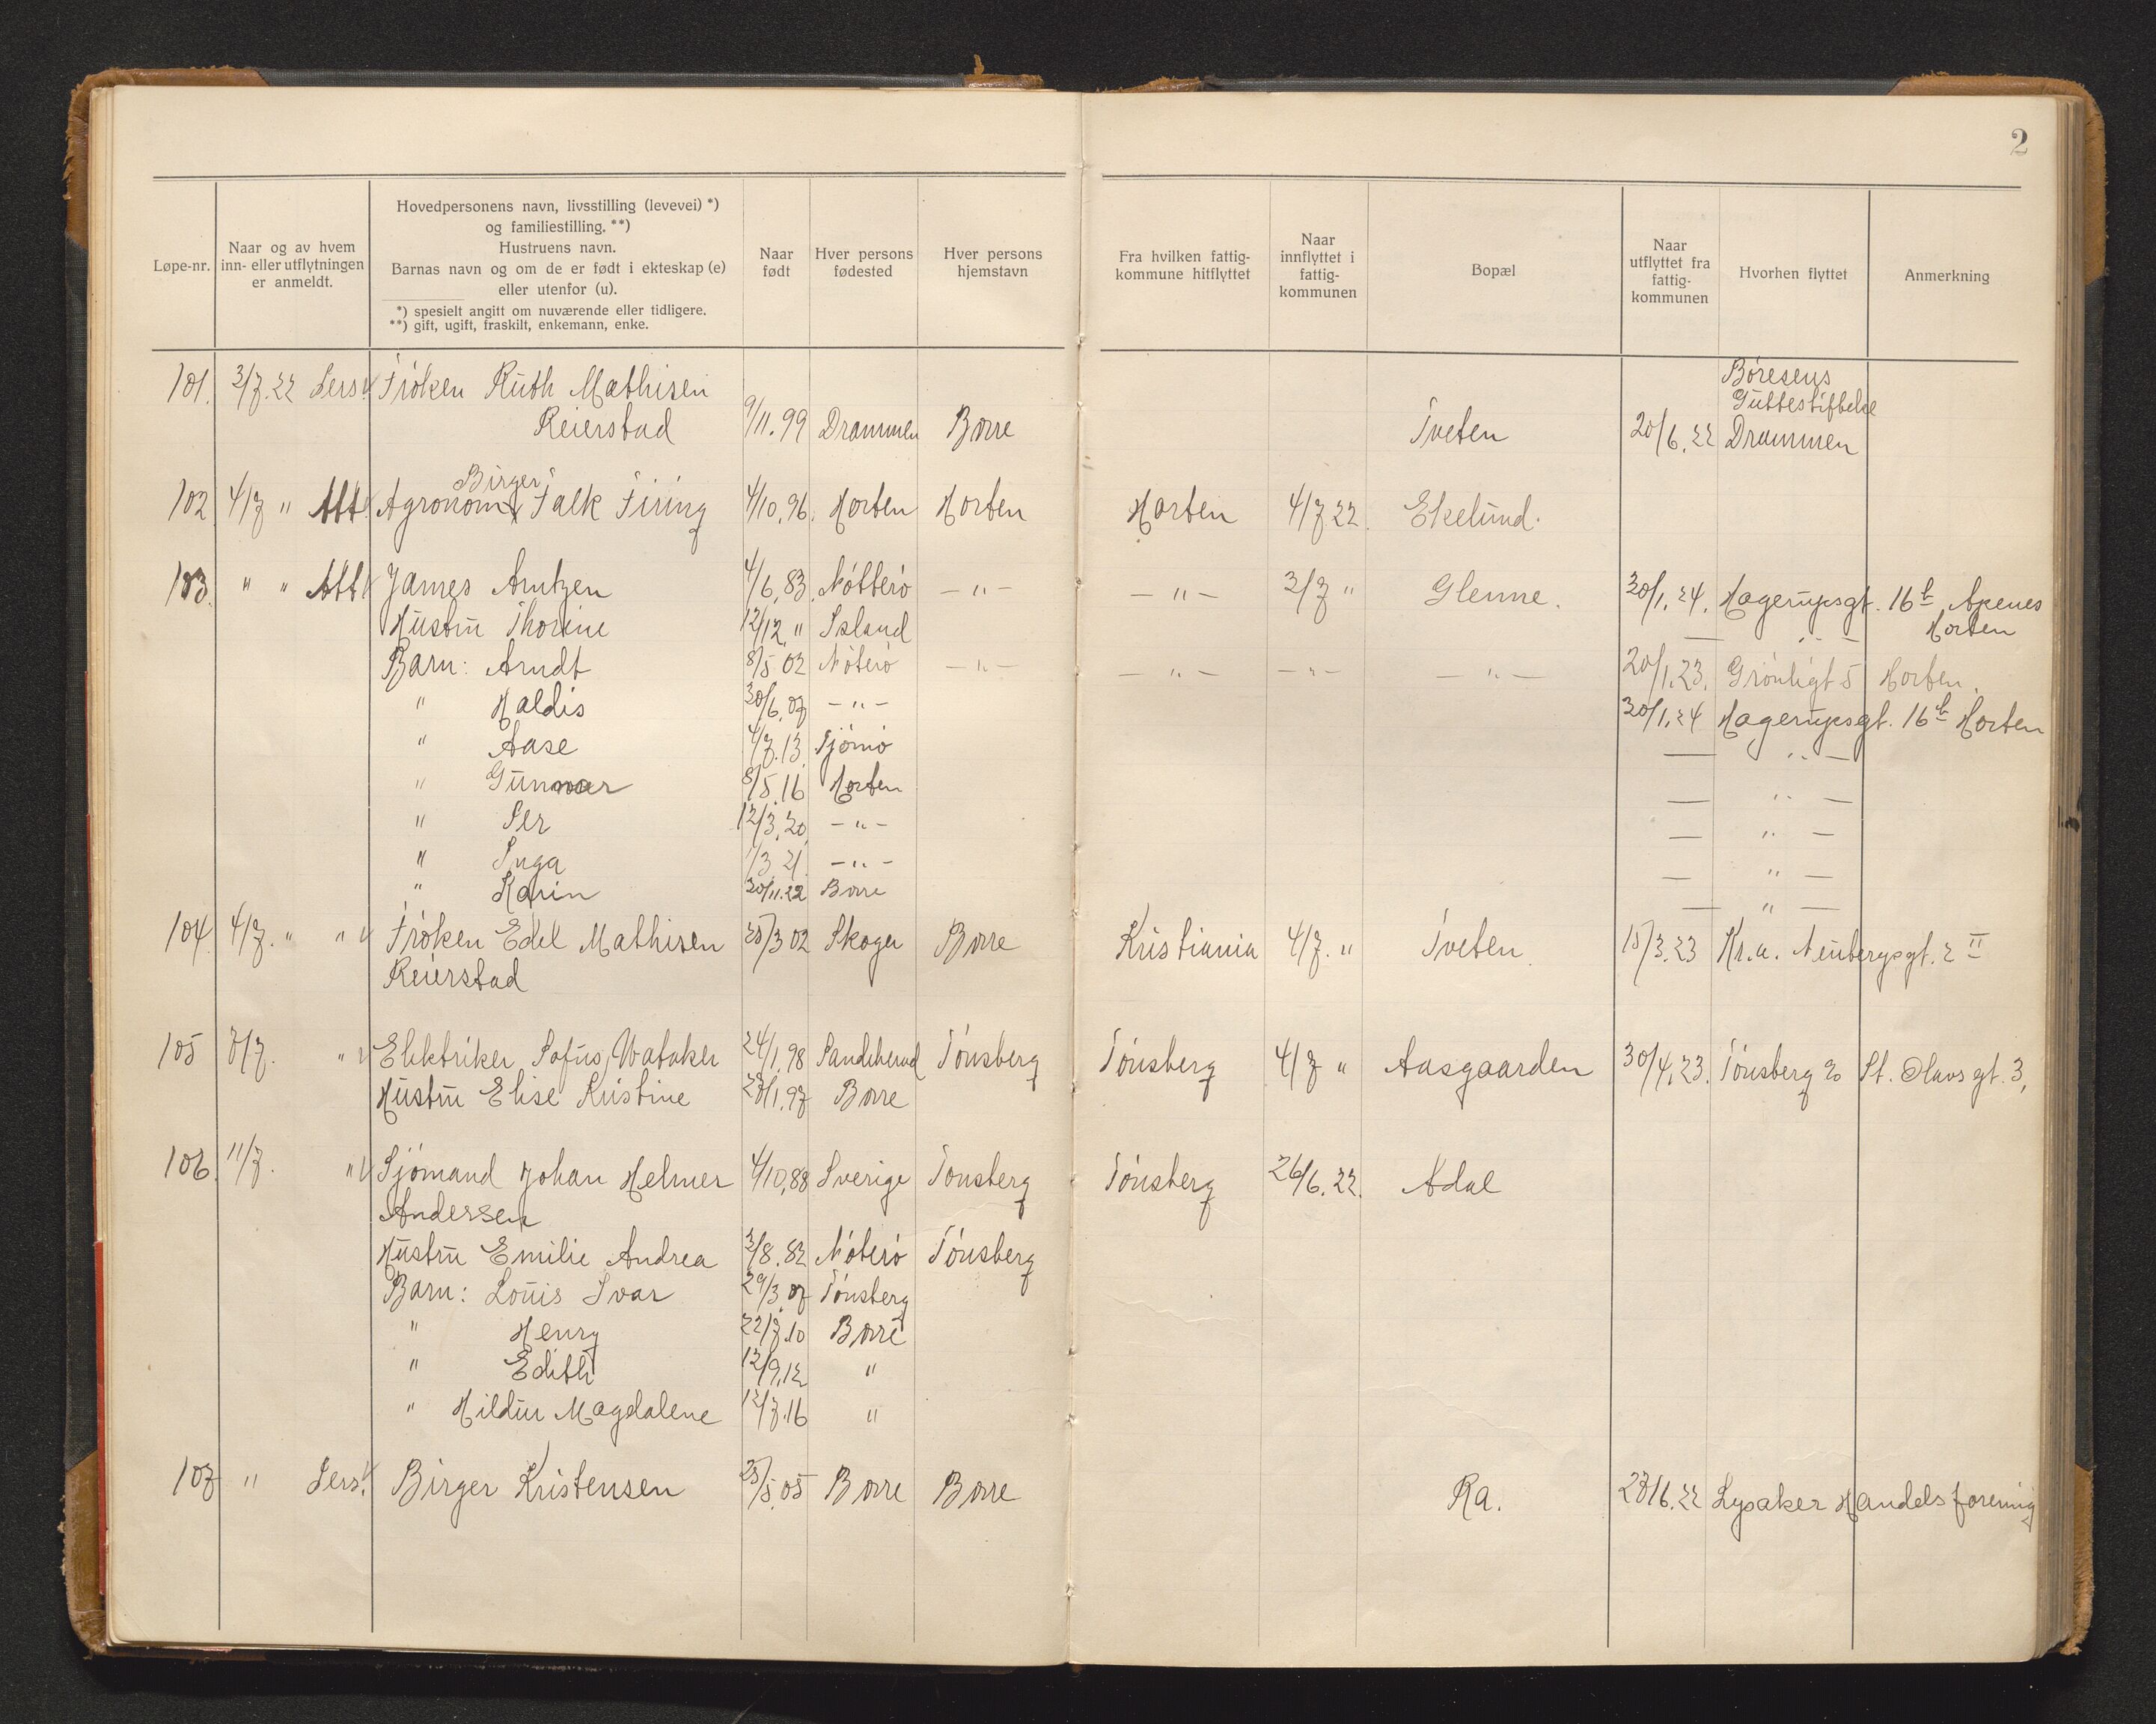 2
Løpe-nr.
Naar og av hvem
inn- eller utflytningen
er anmeldt.
Hovedpersonens navn, livsstilling (levevei) *)
og familiestilling. **)
Hustruens navn.
Barnas navn og om de er født i ekteskap (e)
eller utenfor (u).
*) spesielt angitt om nuværende eller tidligere.
**) gift, ugift, fraskilt, enkemann, enke.
Naar
født
Hver persons
fødested
Hver persons
hjemstavn
Fra hvilken fattig-
kommune hitflyttet
Naar
innflyttet i
fattig-
kommunen
Bopæl
Naar
utflyttet fra
fattig-
kommunen
Hvorhen flyttet
Anmerkning
101. 3/7.22 Lers. Frøken Ruth Mathisen Børesens
Guttestiftelse
Reierstad 9/11.99 Drammen Borre Tveten 20/6.22 Drammen
Birger
102 4/7 " Att. Agronom Falk Firing 4/10.96. Horten Horten Horten 4/7 22. Ekelund.
103. " " Att. James Arntzen 4/6.83. Nøtterø - " - - " - 3/7 " Glenne. 30/1.24. Hagerupsgt. 16b, Apenes
Horten
Hustru Thorine 12/12. " Island — " —
Barn: Arndt 8/5 02 Nøterø - " - — " — — " — — " — 20/1.23. Grønligt 5 Horten.
" Haldis 30/6.07 - " - 30/1.24 Hagerupsgt. 16b Horten
" Aase 4/7.13. Tjømø — " —
" Gunnar 8/5.16 Horten — " —
" Per 12/3.20. - " - — " —
" Inga 1/3 21. - " - — " —
" Karin 30/11.22 Borre — " —
104 4/7. " " Frøken Edel Mathisen 25/3 02 Skoger Borre Kristiania 4/7. " Tveten 15/3.23 Kr.a. Neubergsgt. 2 II
Reierstad
105 8/7. " Elektriker Sofus Wataker 24/1.98 Sandeherad Tønsberg Tønsberg 4/7 " Aasgaarden 30/4.23. Tønsberg St. Olavs gt. 3,
Hustru Elise Kristine 28/1.97 Borre
106. 11/7. " Sjømand Johan Helmer 4/10.88 Sverige Tønsberg Tønsberg 26/6.22. Adal
Andersen
Hustru Emilie Andrea 3/8.82 Nøterø Tønsberg
Barn: Louis Ivar 29/3.07 Tønsberg
" Henry 22/7.10 Borre
" Edith 12/9.12 "
" Hildur Magdalene 12/7.16 "
107 " Lers. Birger Kristensen 25/5.05 Borre Borre Ra. 28/6.22 Lysaker Handelsforening